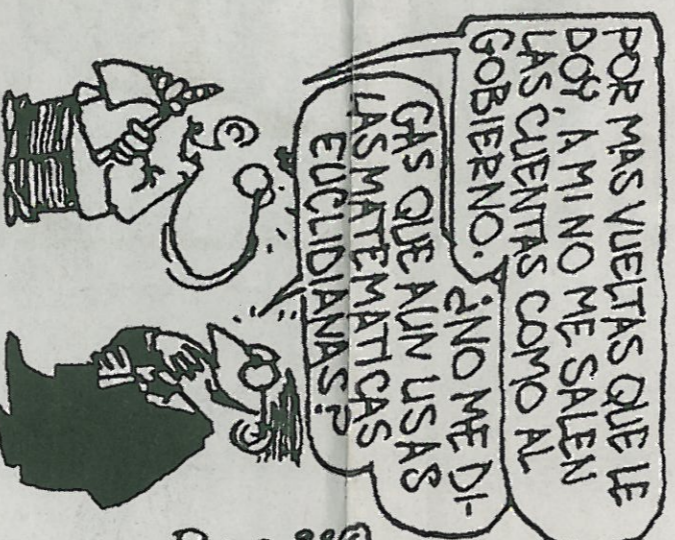 POR MAS VUELTAS QUE LE
DOY, A MI NO ME SALEN
LAS CUENTAS COMO AL
GOBIERNO.
¿NO ME DI-
GAS QUE AUN USAS
LAS MATEMATICAS
EUCLIDIANAS?